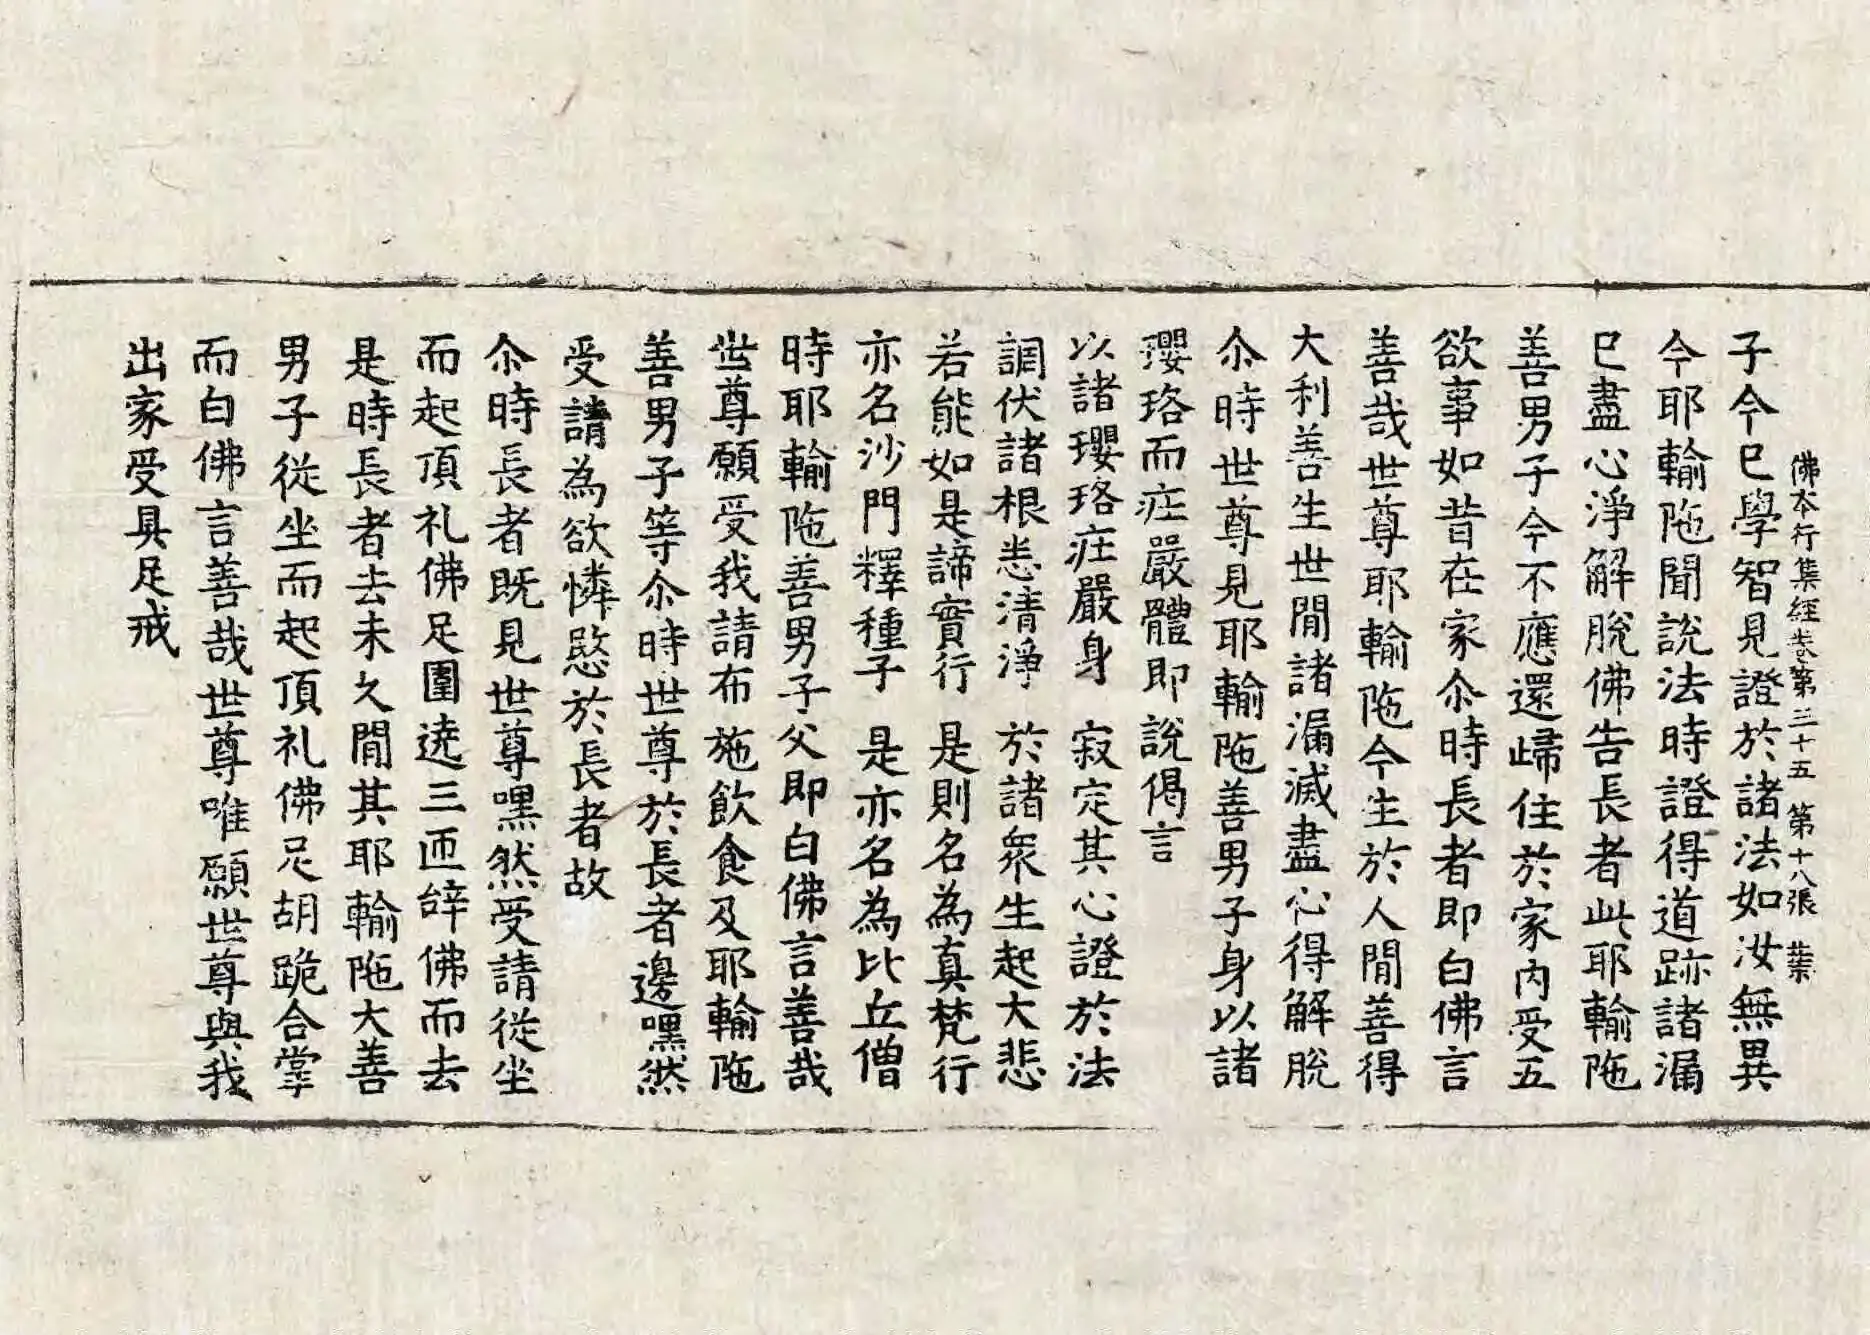 佛本行集經卷第三十五 第十八張 業
子今已學智見證於諸法如汝無異
今耶輸陁聞說法時證得道跡諸漏
已盡心淨解脫佛告長者此耶輸陁
善男子今不應還歸住於家內受五
欲事如昔在家尒時長者即白佛言
善哉世尊耶輸陁今生於人間善得
大利善生世間諸漏滅盡心得解脫
尒時世尊見耶輸陁善男子身以諸
瓔珞而庄嚴體即說偈言
以諸瓔珞庄嚴身 寂定其心證於法
調伏諸根恙清淨 於諸衆生起大悲
若能如是諦實行 是則名為真梵行
亦名沙門釋種子 是亦名為比丘僧
時耶輸陁善男子父即白佛言善哉
世尊願受我請布施飲食及耶輸陁
善男子等尒時世尊於長者邊嘿然
受請為欲憐愍於長者故
尒時長者既見世尊嘿然受請從坐
而起頂礼佛足圍遶三匝辝佛而去
是時長者去未久間其耶輸陁大善
男子從坐而起頂礼佛足胡跪合掌
而白佛言善哉世尊唯願世尊與我
出家受具足戒